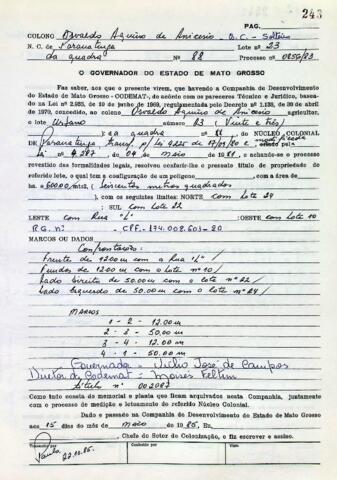 PAG. 243
COLONO Osvaldo Aquino de Anicesio - B.C. - Solteiro
N. C. de Paranatinga Lote nº 23
da quadra Nº 88 Processo nº 0856/83
O GOVERNADOR DO ESTADO DE MATO GROSSO
Faz saber, aos que o presente virem, que havendo a Companhia de Desenvolvimento
do Estado de Mato Grosso - CODEMAT-, do acôrdo com os pareceres Técnico e Jurídico, basea-
do na Lei nº 2.935, de 19 de junho de 1969, regulamentada pelo Decreto nº 1.138, de 30 de abril
de 1970, concedido, ao colono Osvaldo Aquino de Anicesio agricultor,
o lote Urbano número 23 (Vinte e três)
da quadra nº 88 DO NÚCLEO COLONIAL
DE Paranatinga, transf. p/ Lei 4225 de
Lei nº 4.287 de 04 de Maio de 1981, e achando-se o processo
revestido das formalidades legais, resolveu conferir-lhe o presente titulo de propriedade do
referido lote, o qual tem a configuração de um polígono, com a área de
ha. 600,00 mts2. (Seiscentos metros quadrados)
, com os seguintes limites: NORTE com Lote 24
: SUL com Lote 22
LESTE com Rua "L" : OESTE com Lote 10
R.G. nº - CPF.- 174.008.601-20
MARCOS OU DADOS Confrontações:
Frente de 12.00 m com a Rua "L"/
Fundos de 12.00 m com o Lote nº 10/
Lado Direito de 50.00 m com o Lote nº 22/
Lado Esquerdo de 50.00 m com o Lote nº 24/
MARCOS
1 - 2 - 12.00 m
2 - 3 - 50.00 m
3 - 4 - 12.00 m
4 - 1 - 50.00 m
Governador - Júlio José de Campos
Diretor da Codemat - Moises Feltrin
título nº 002087
Como tudo consta do memorial e planta que ficam arquivados nesta Companhia, juntamente
com o processo de medição e loteamento do referido Núcleo Colonial.
Dado e passado na Companhia de Desenvolvimento do Estado de Mato Grosso
aos 15 dias do mês de Maio de 1985, Eu,
, Chefe do Setor de Colonização, o fiz escrever e assino.
Transcrito por Conferido por Visto
Paulo 22.10.85.